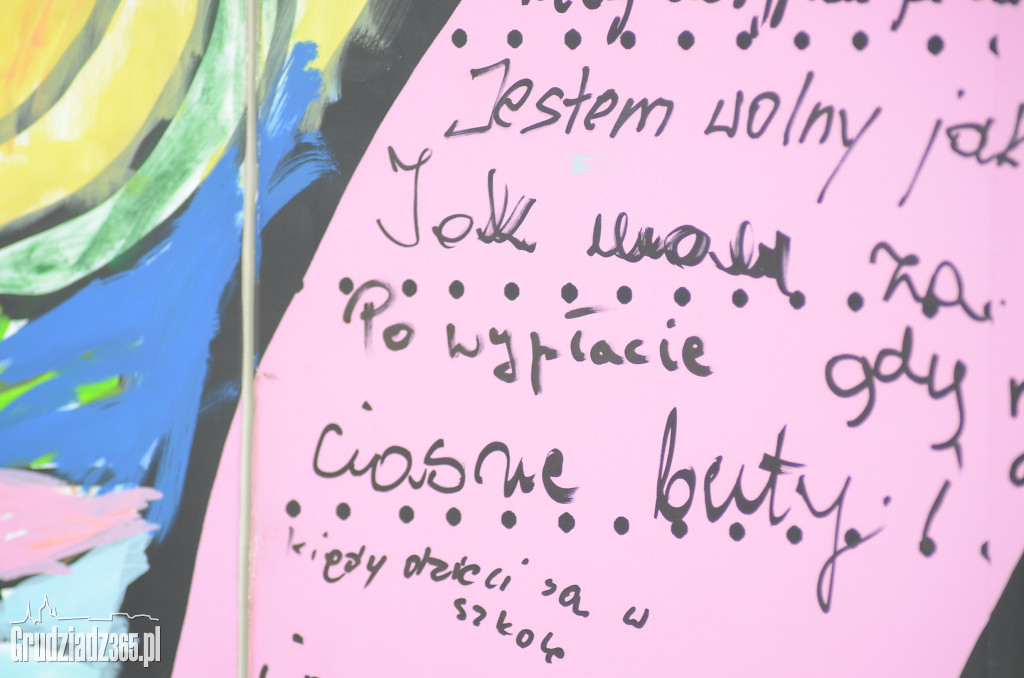 Jestem wolny jak
Jak mam za
Po wypłacie gdy
ciasne buty.
kiedy dzieci są w
szkole
Grudziadz365.pl